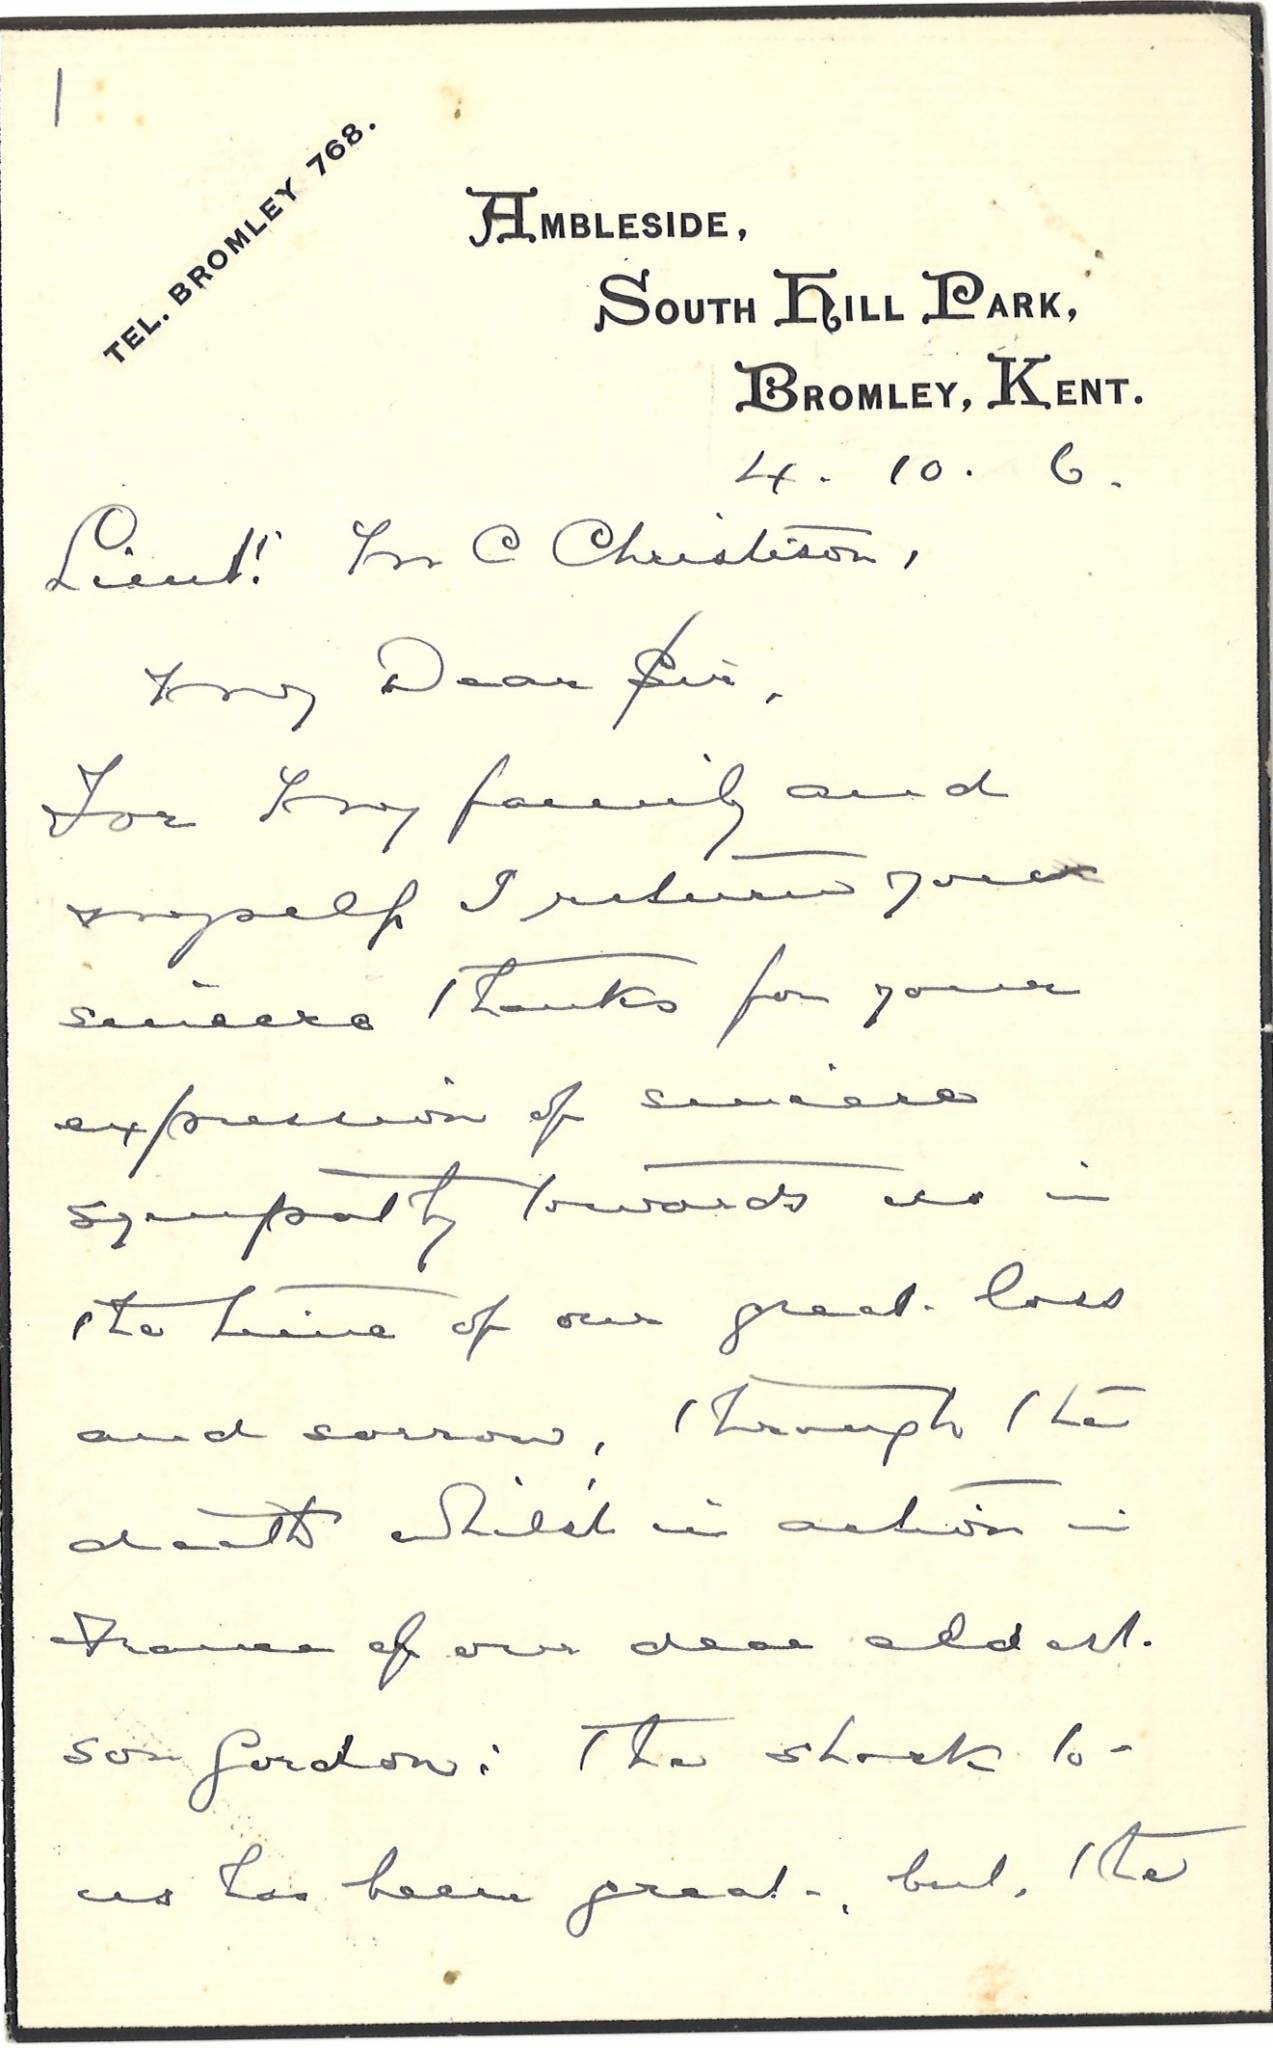 1
TEL. BROMLEY 768.
AMBLESIDE,
SOUTH HILL PARK,
BROMLEY, KENT.
4. 10. 6.
Lieut! M C Christison,
My Dear Sir,
For My family and
myself I return you
sincere thanks for your
expression of sincere
sympathy towards us in
the time of our great loss
and sorrow, through the
death whilst in action in
France of our dear eldest
son Gordon: The shock to
us has been great, but, the